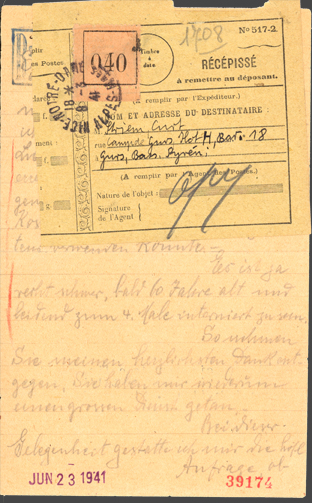 Nº 517-2.
1708
RÉCÉPISSÉ
à remettre au déposant.
Timbre
à
date
040
NICE-NOTRE-D
ALPES-M
18
(A remplir par l'Expéditeur.)
NOM ET ADRESSE DU DESTINATAIRE
Curt
Camp de Gurs, Ilot H, Bara. 18
Gurs, Bass. Pyren.
(A remplir par l'Agent des Postes.)
Nature de l'objet :
Signature
de l'Agent
verwenden konnte. —
Es ist ja
recht schwer, bald 60 Jahre alt und
leidend zum 4. Male interniert zu sein.
So nehmen
Sie meinen herzlichsten Dank ent-
gegen. Sie haben mir wiederum
einen grossen Dienst getan.
Bei dieser
Gelegenheit gestatte ich mir die höfl.
Anfrage ob
JUN 23 1941
39174